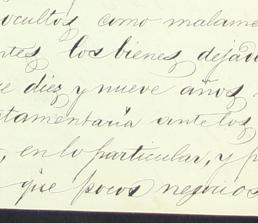 ocultos como malame
ntes los bienes dejad
e diez y nueve años
tamentaria ante los
, en lo particular, y p
que pocos negocios